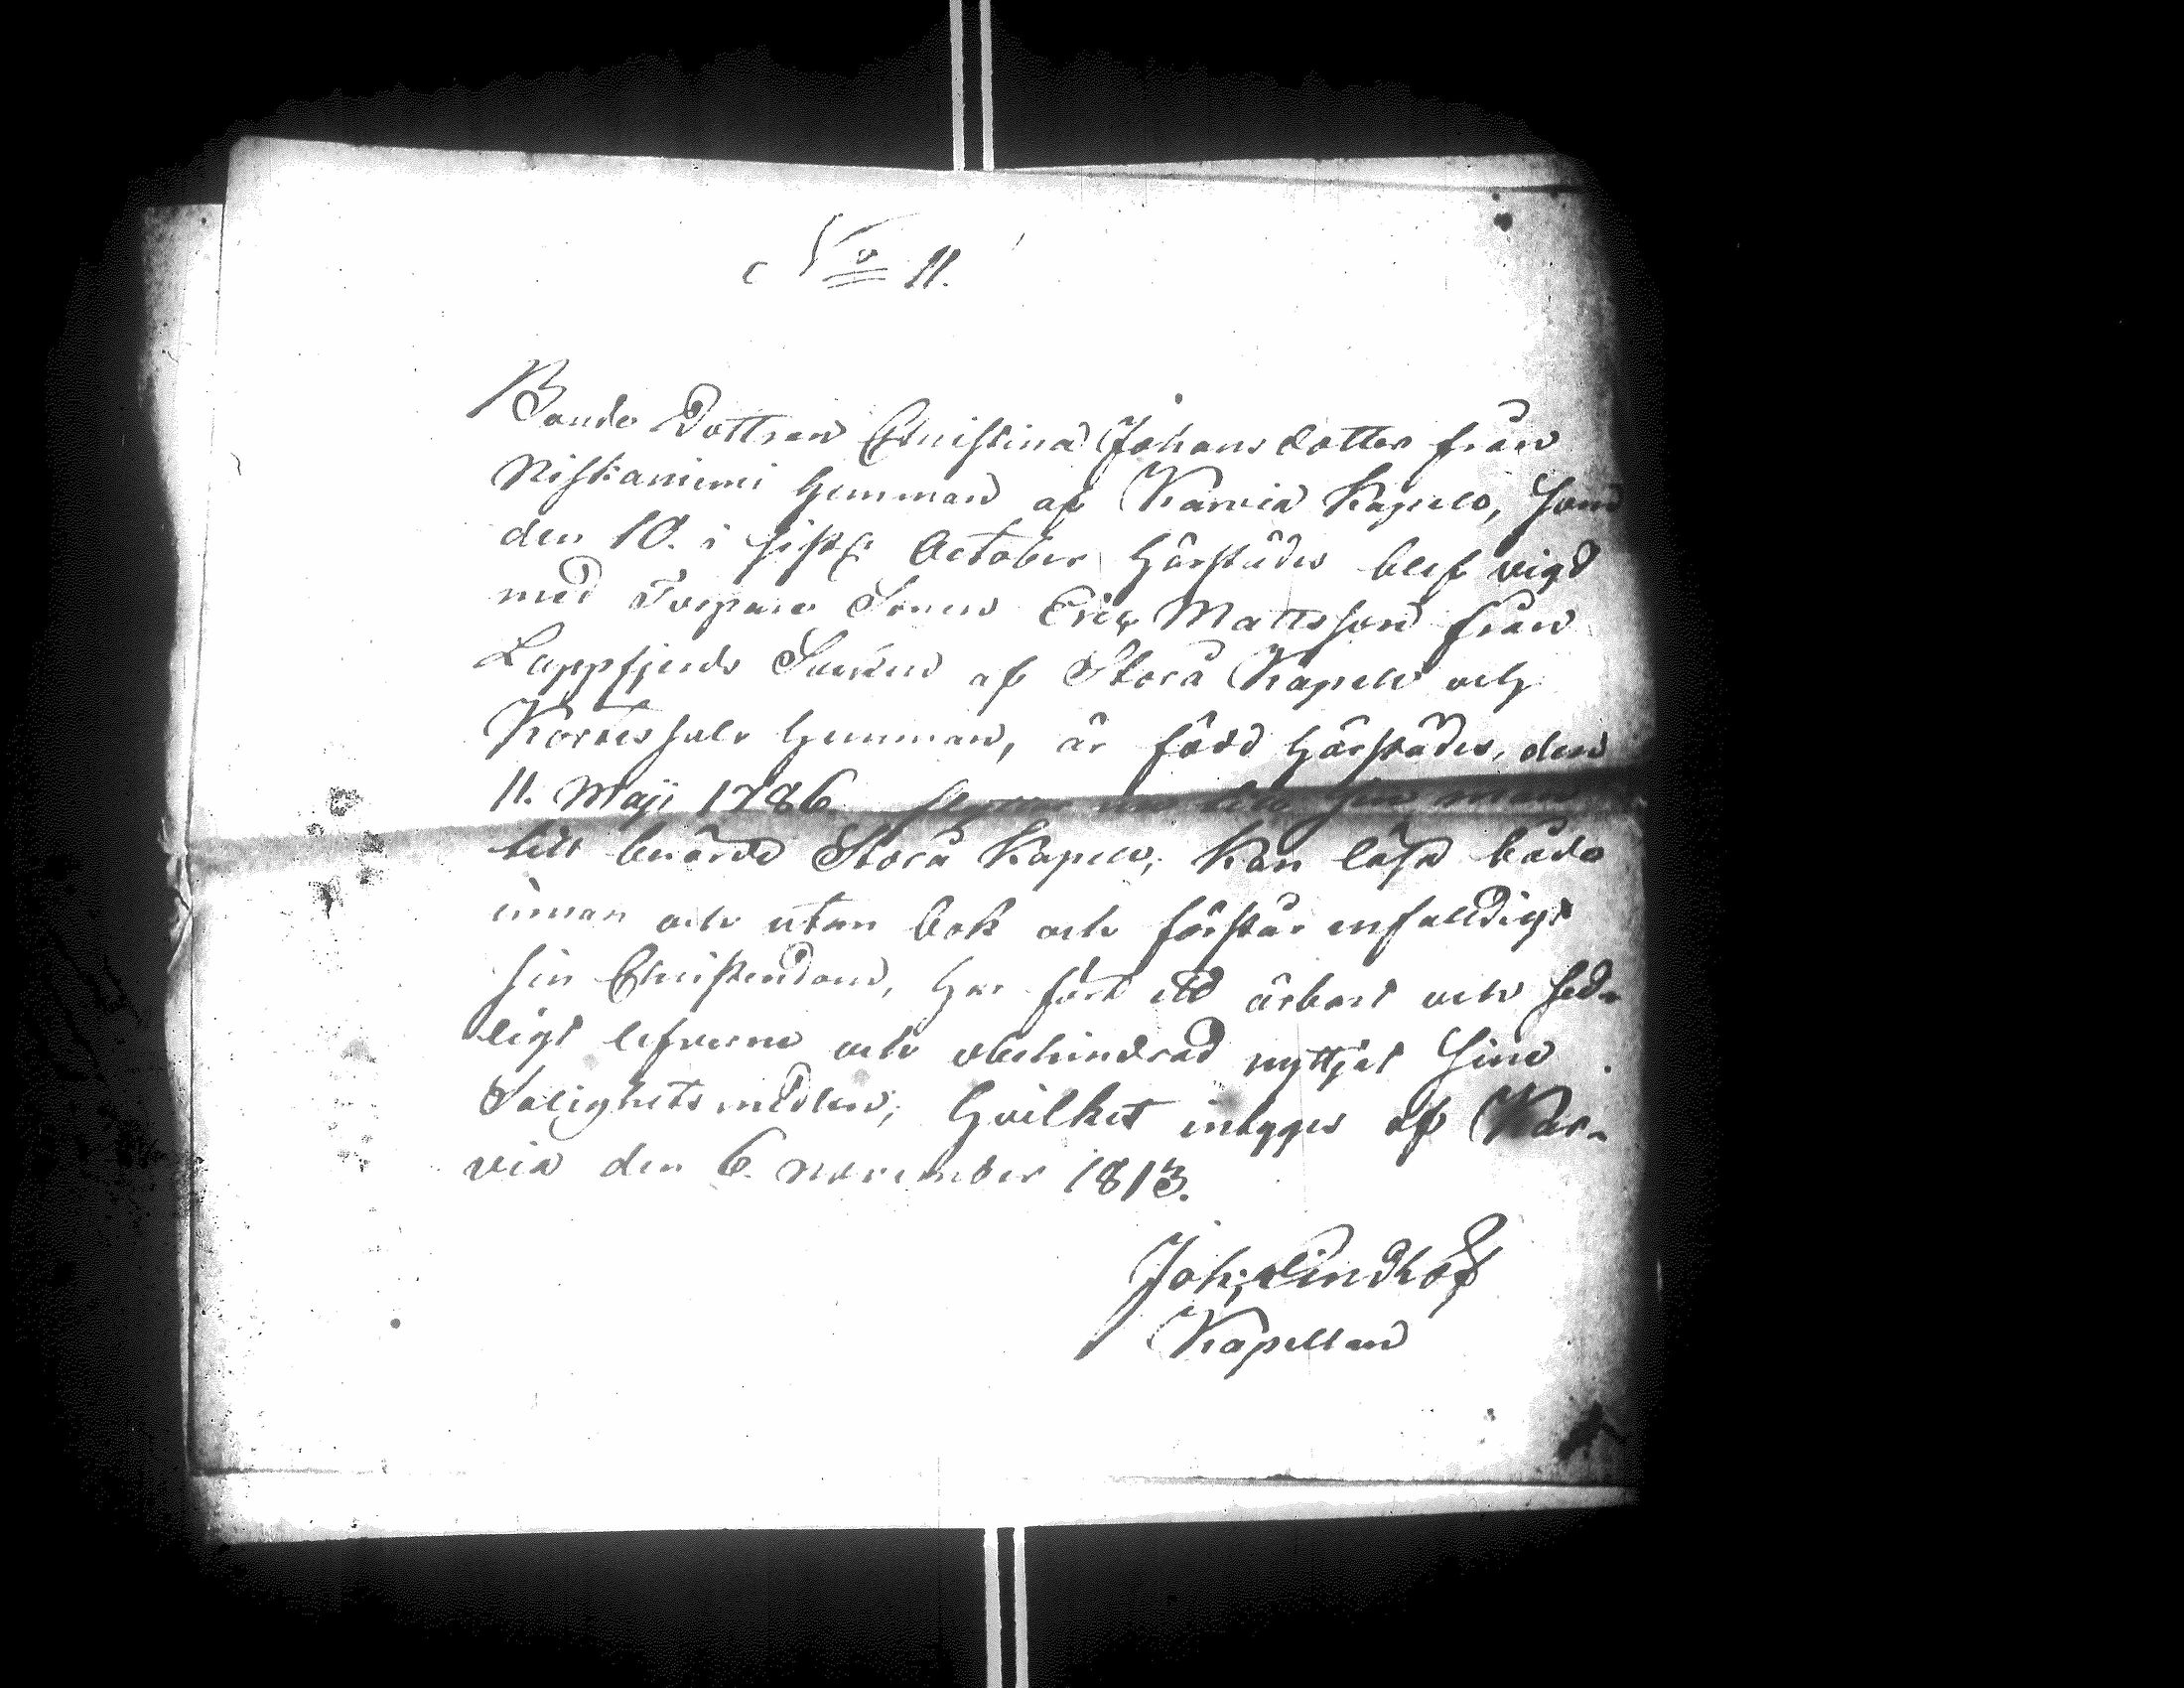 No 11.
Bonde Dottren Christina Johansdotter från
Niskaniemi hemman af Karvia Kapell, som
den 10. i sistl. October härstädes blef vigd
med Torpare Sonen Eric Mattsson från
Lappfjerds Socken af Storå Kapell och
hemman, är född härstädes, den
11. Maji 1786 flyttar nu till sin man
till berörde Storå Kapell, kan läsa både
innan och utan bok och förstår enfaldigt
sin Christendom, har fört ett ärbart och sed-
ligt lefverne och obehindrad nyttjat sine
Salighetsmedlen; hvilket intygas af Kar-
via den 6. November 1813.
Joh: Lindlöf
Kapellan